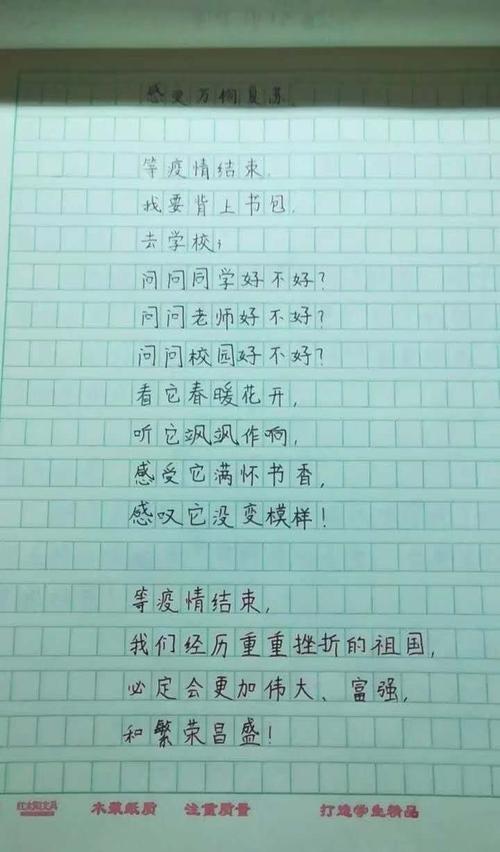 感受万物复苏.
等疫情结束.
我要背上书包.
去学校；
问问同学好不好？
问问老师好不好？
问问校园好不好？
看它春暖花开,
听它飒飒作响,
感受它满怀书香,
感叹它没变模样！
等疫情结束,
我们经历重重挫折的祖国,
必定会更加伟大、富强,
和繁荣昌盛！
红太阳文具 木浆纸质 注重质量 打造学生精品